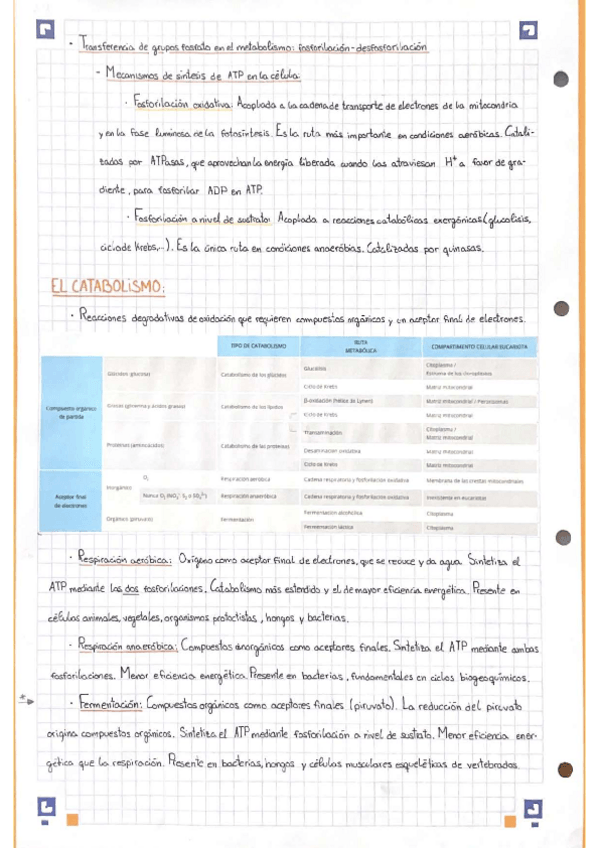 · Transferencia de grupos fosfato en el metabolismo: fosforilación-desfosforilación
- Mecanismos de síntesis de ATP en la célula:
· Fosforilación oxidativa: Acoplada a la cadena de transporte de electrones de la mitocondria
y en la fase luminosa de la fotosíntesis. Es la ruta más importante en condiciones aeróbicas. Catali-
zadas por ATPasas, que aprovechan la energía liberada cuando las atraviesan H+ a favor de gra-
diente, para fosforilar ADP en ATP.
· Fosforilación a nivel de sustrato: Acoplada a reacciones catabólicas exergónicas (glucolisis,
ciclo de Krebs,...). Es la única ruta en condiciones anaerobias. Catalizadas por quinasas.
EL CATABOLISMO:
· Reacciones degradativas de oxidación que requieren compuestos orgánicos y un aceptor final de electrones.
TIPO DE CATABOLISMO RUTA METABÓLICA COMPARTIMENTO CELULAR EUCARIOTA
Compuesto orgánico de partida
Glúcidos (glucosa) Catabolismo de los glúcidos Glucólisis Citoplasma /
Ciclo de Krebs Matriz mitocondrial
Grasas (glicerina y ácidos grasos) Catabolismo de los lípidos β-oxidación (hélice de Lynen) Matriz mitocondrial / Peroxisomas
Ciclo de Krebs Matriz mitocondrial
Proteínas (aminoácidos) Catabolismo de las proteínas Transaminación Citoplasma / Matriz mitocondrial
Desaminación oxidativa Matriz mitocondrial
Ciclo de Krebs Matriz mitocondrial
Aceptor final de electrones
Inorgánico O2 Respiración aerobica Cadena respiratoria y fosforilación oxidativa Membrana de las crestas mitocondriales
Nunca O2 Respiración anaeróbica Cadena respiratoria y fosforilación oxidativa Inexistente en eucariotas
Orgánico (piruvato) Fermentación Fermentación alcohólica Citoplasma
Fermentación láctica Citoplasma
· Respiración aeróbica: Oxígeno como aceptor final de electrones, que se reduce y da agua. Sintetiza el
ATP mediante las dos fosforilaciones. Catabolismo más extendido y el de mayor eficiencia energética. Presente en
células animales, vegetales, organismos protoctistas, hongos y bacterias.
· Respiración anaeróbica: Compuestos inorgánicos como aceptores finales. Sintetiza el ATP mediante ambas
fosforilaciones. Menor eficiencia energética. Presente en bacterias, fundamentales en ciclos biogeoquímicos.
· Fermentación: Compuestos orgánicos como aceptores finales (piruvato). La reducción del piruvato
origina compuestos orgánicos. Sintetiza el ATP mediante fosforilación a nivel de sustrato. Menor eficiencia ener-
gética que la respiración. Presente en bacterias, hongos y células musculares esqueléticas de vertebrados.